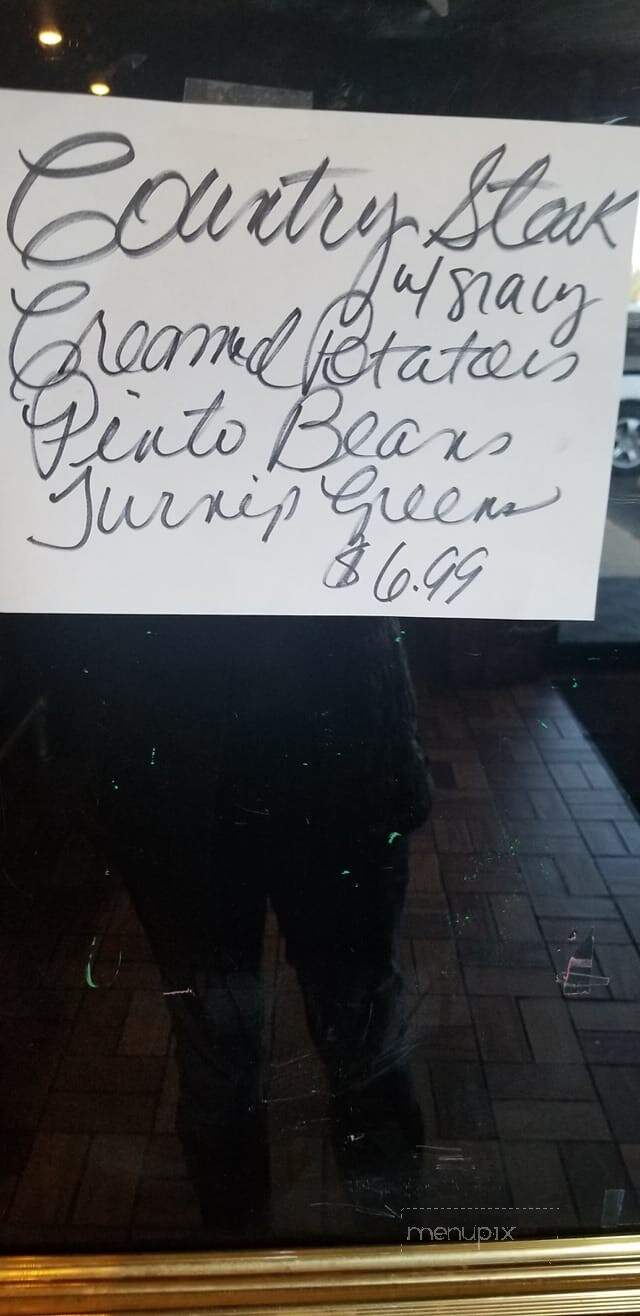 Country Steak
w/ gravy
Creamed Potatoes
Pinto Beans
Turnip Greens
$6.99
menupix